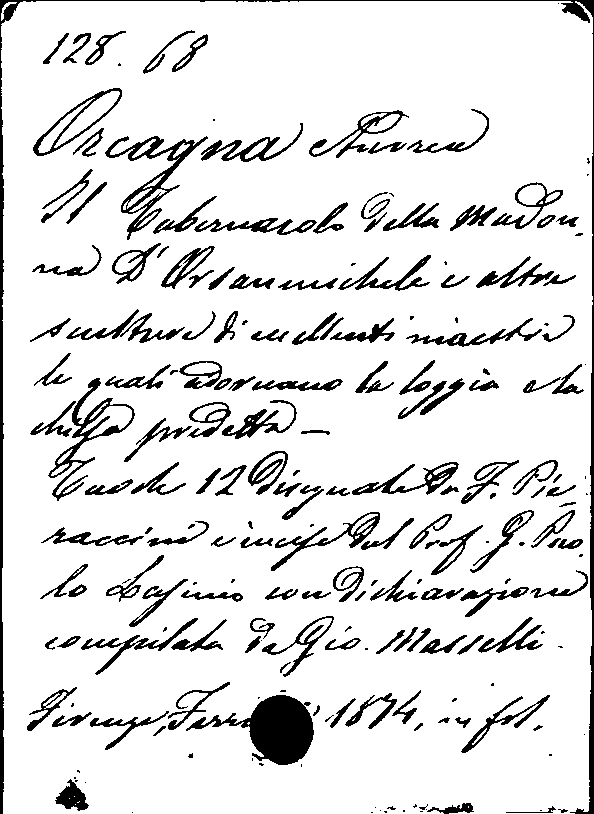 128. 68
Orcagna Andrea
Il Tabernacolo della Madon-
na D'Orsanmichele e altre
sculture di eccellenti maestri
le quali adornano la loggia e la
chiesa predetta —
Tavole 12 disegnate da F. Pie-
raccini e incise dal Prof. G. Pao-
lo Lasinio con dichiarazione
compilata da Gio. Masselli.
Firenze, 1874, in fol.